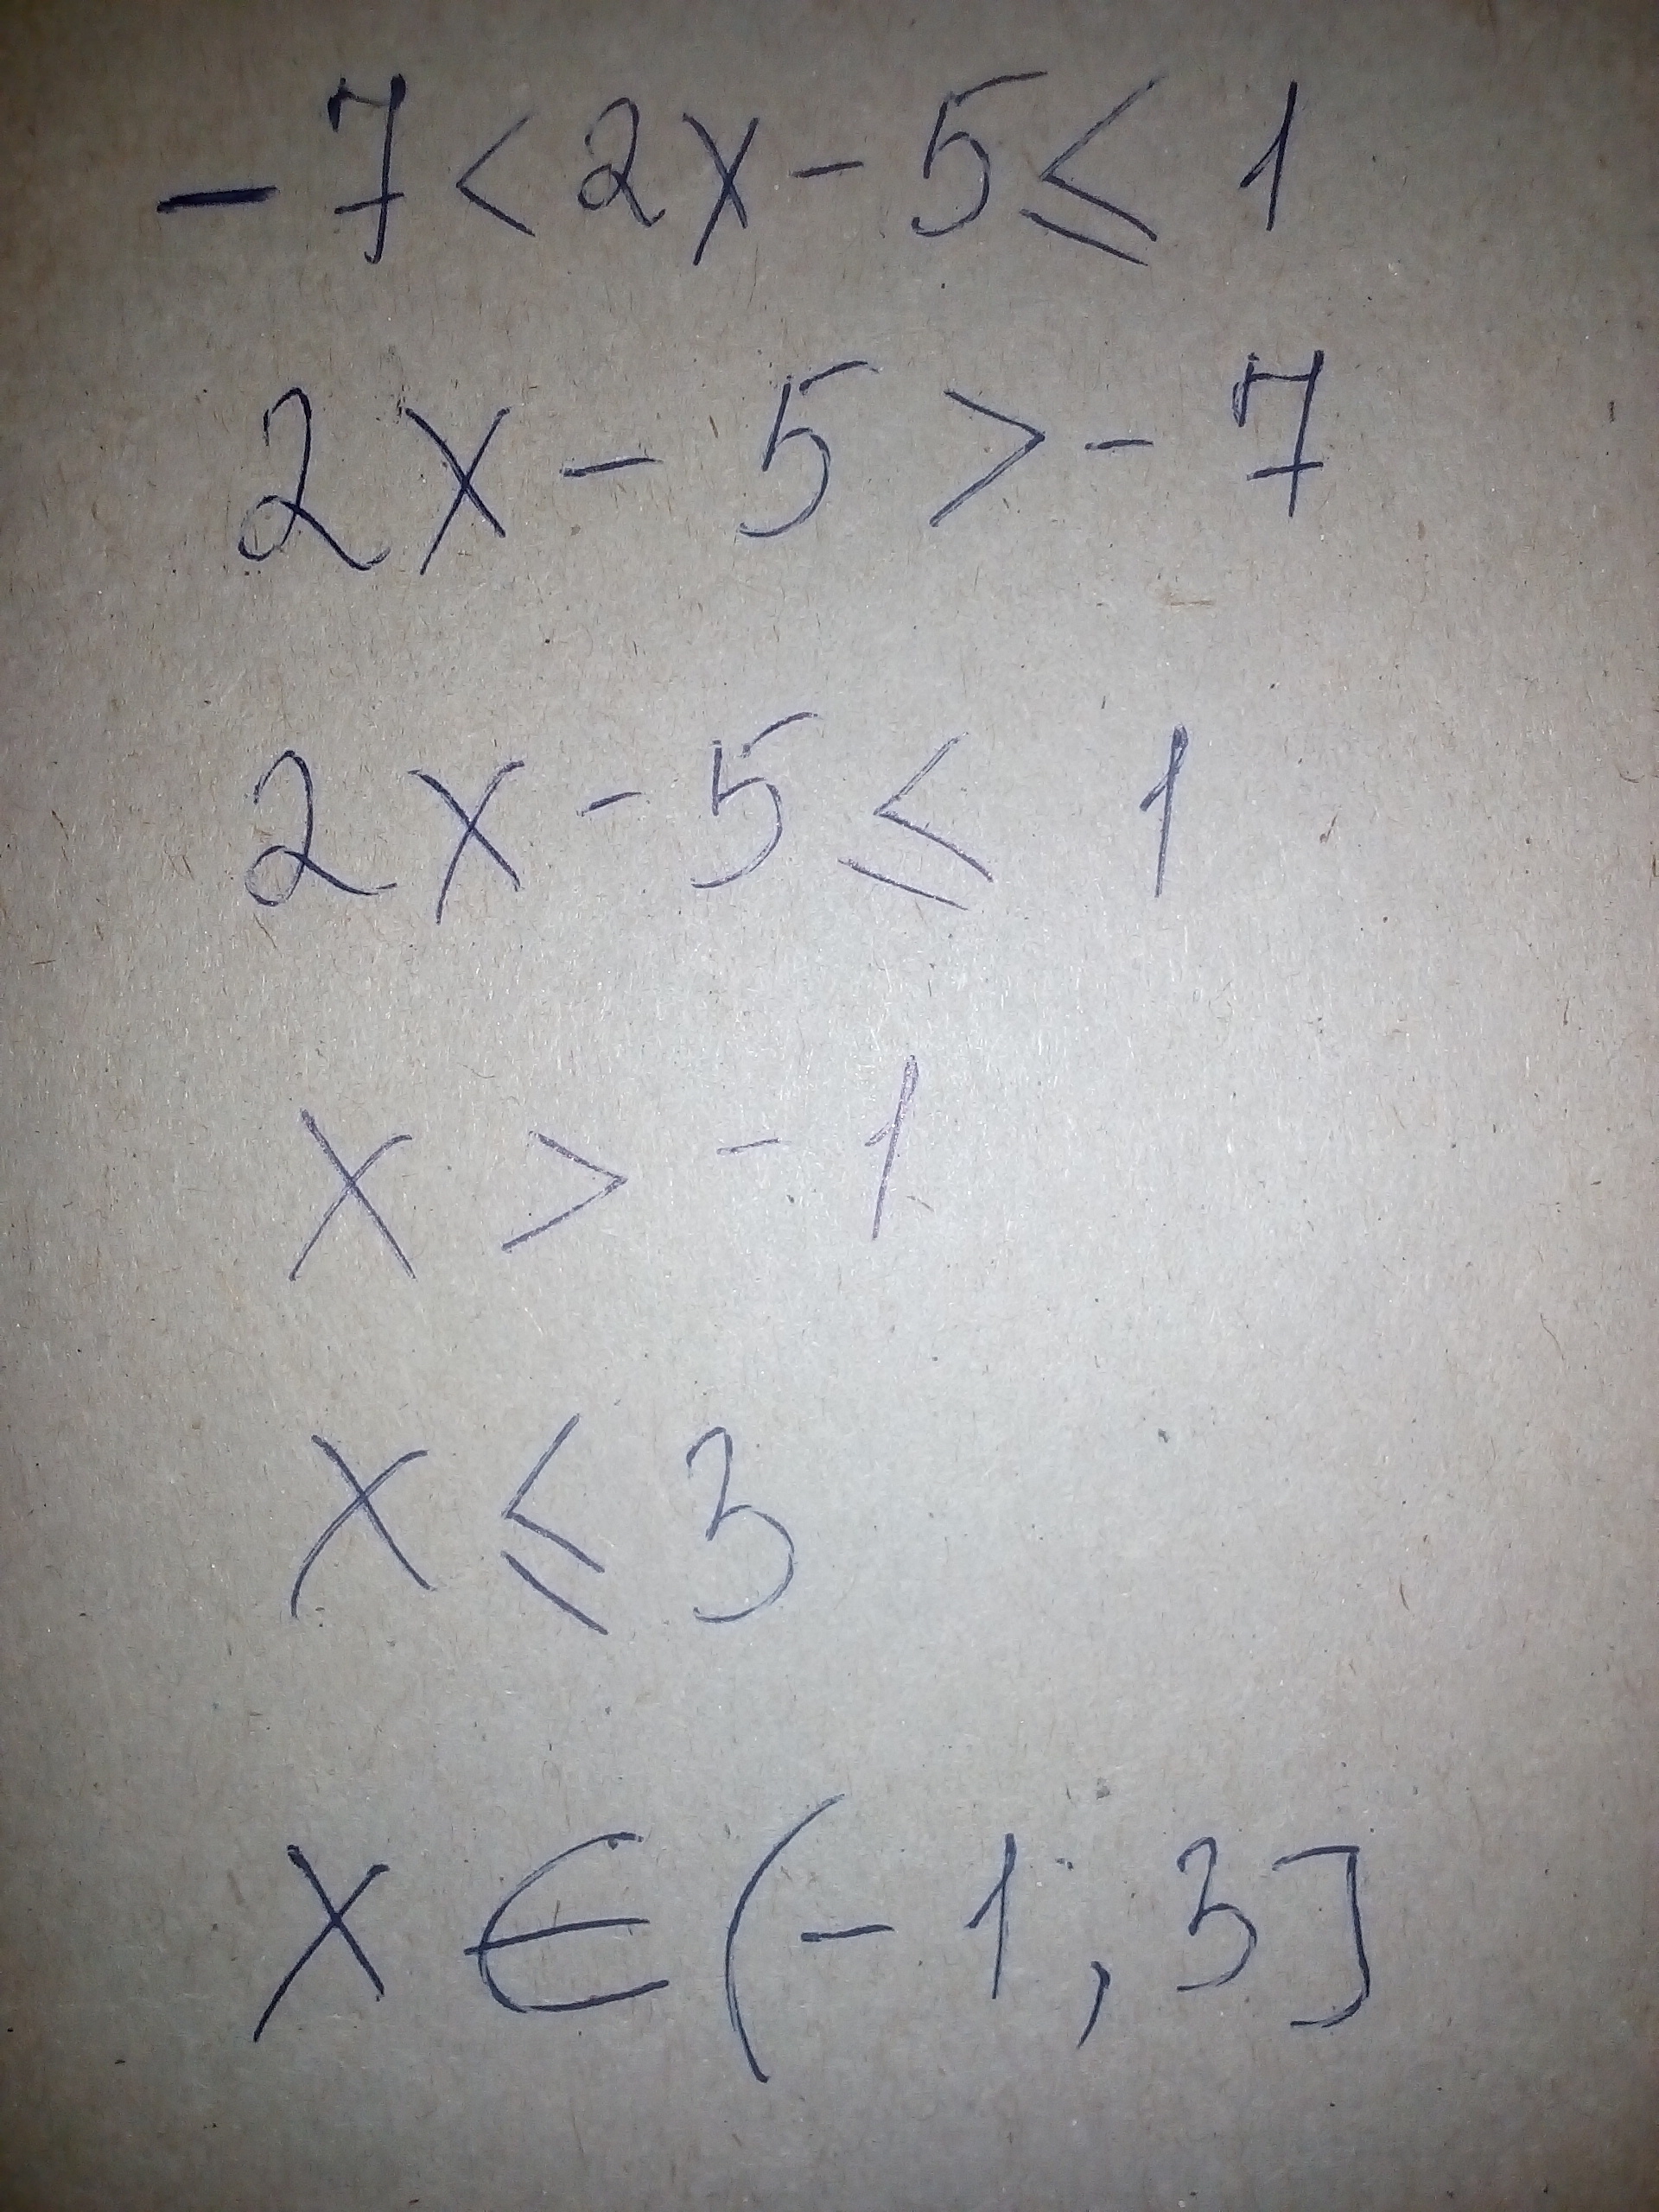 -7<2x-5≤1
2x-5>-7
2x-5≤1
x>-1
x≤3
x∈(-1,3]